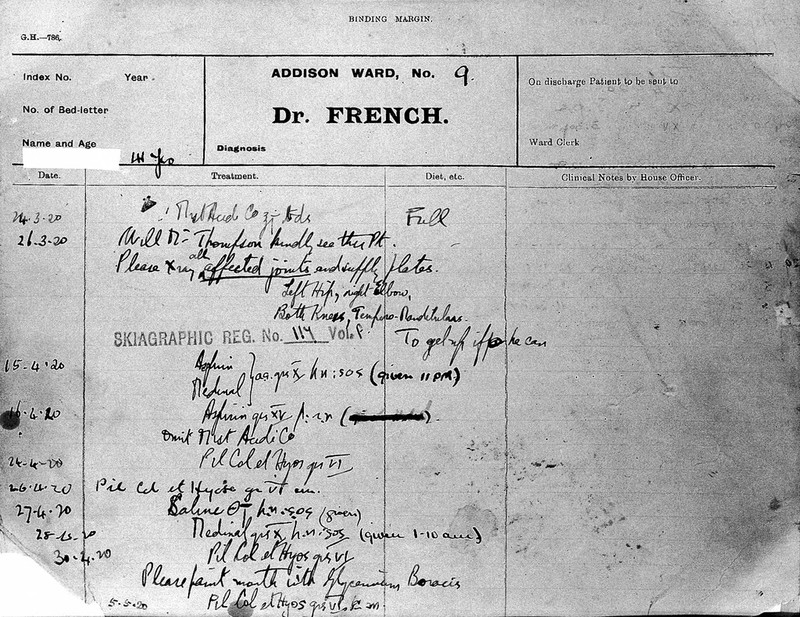 BINDING MARGIN.
G.H.—786.
Index No. Year
No. of Bed-letter
Name and Age 14 yrs
ADDISON WARD, No. 9
Dr. FRENCH.
Diagnosis
On discharge Patient to be sent to
Ward Clerk
Date. Treatment. Diet, etc. Clinical Notes by House Officer.
24.3.20 Mist Acidi Co tds Full
26.3.20 Will Mr Thompson kindly see this Pt.
Please Xray all affected joints and supply plates.
Left Hip, right Elbow,
Both Knees, Temporo-Mandibulars.
SKIAGRAPHIC REG. No. 114 Vol. P.
To get up if he can
15.4.20 Aspirin
Medinal } aa. grs X h.n: sos (given 11 P.M.)
16.4.20 Aspirin grs XV
Omit Mist Acidi Co
24.4.20 Pil Col et Hyos grs VI
26.4.20 Pil Col et Hyosc gr VI
27.4.20 Saline h.n: sos (given)
Medinal grs X h.n: sos (given 1-10 am)
30.4.20 Pil Col et Hyos grs VI
Please paint mouth with Glycerinum Boracis
5.5.20 Pil Col et Hyos grs VI